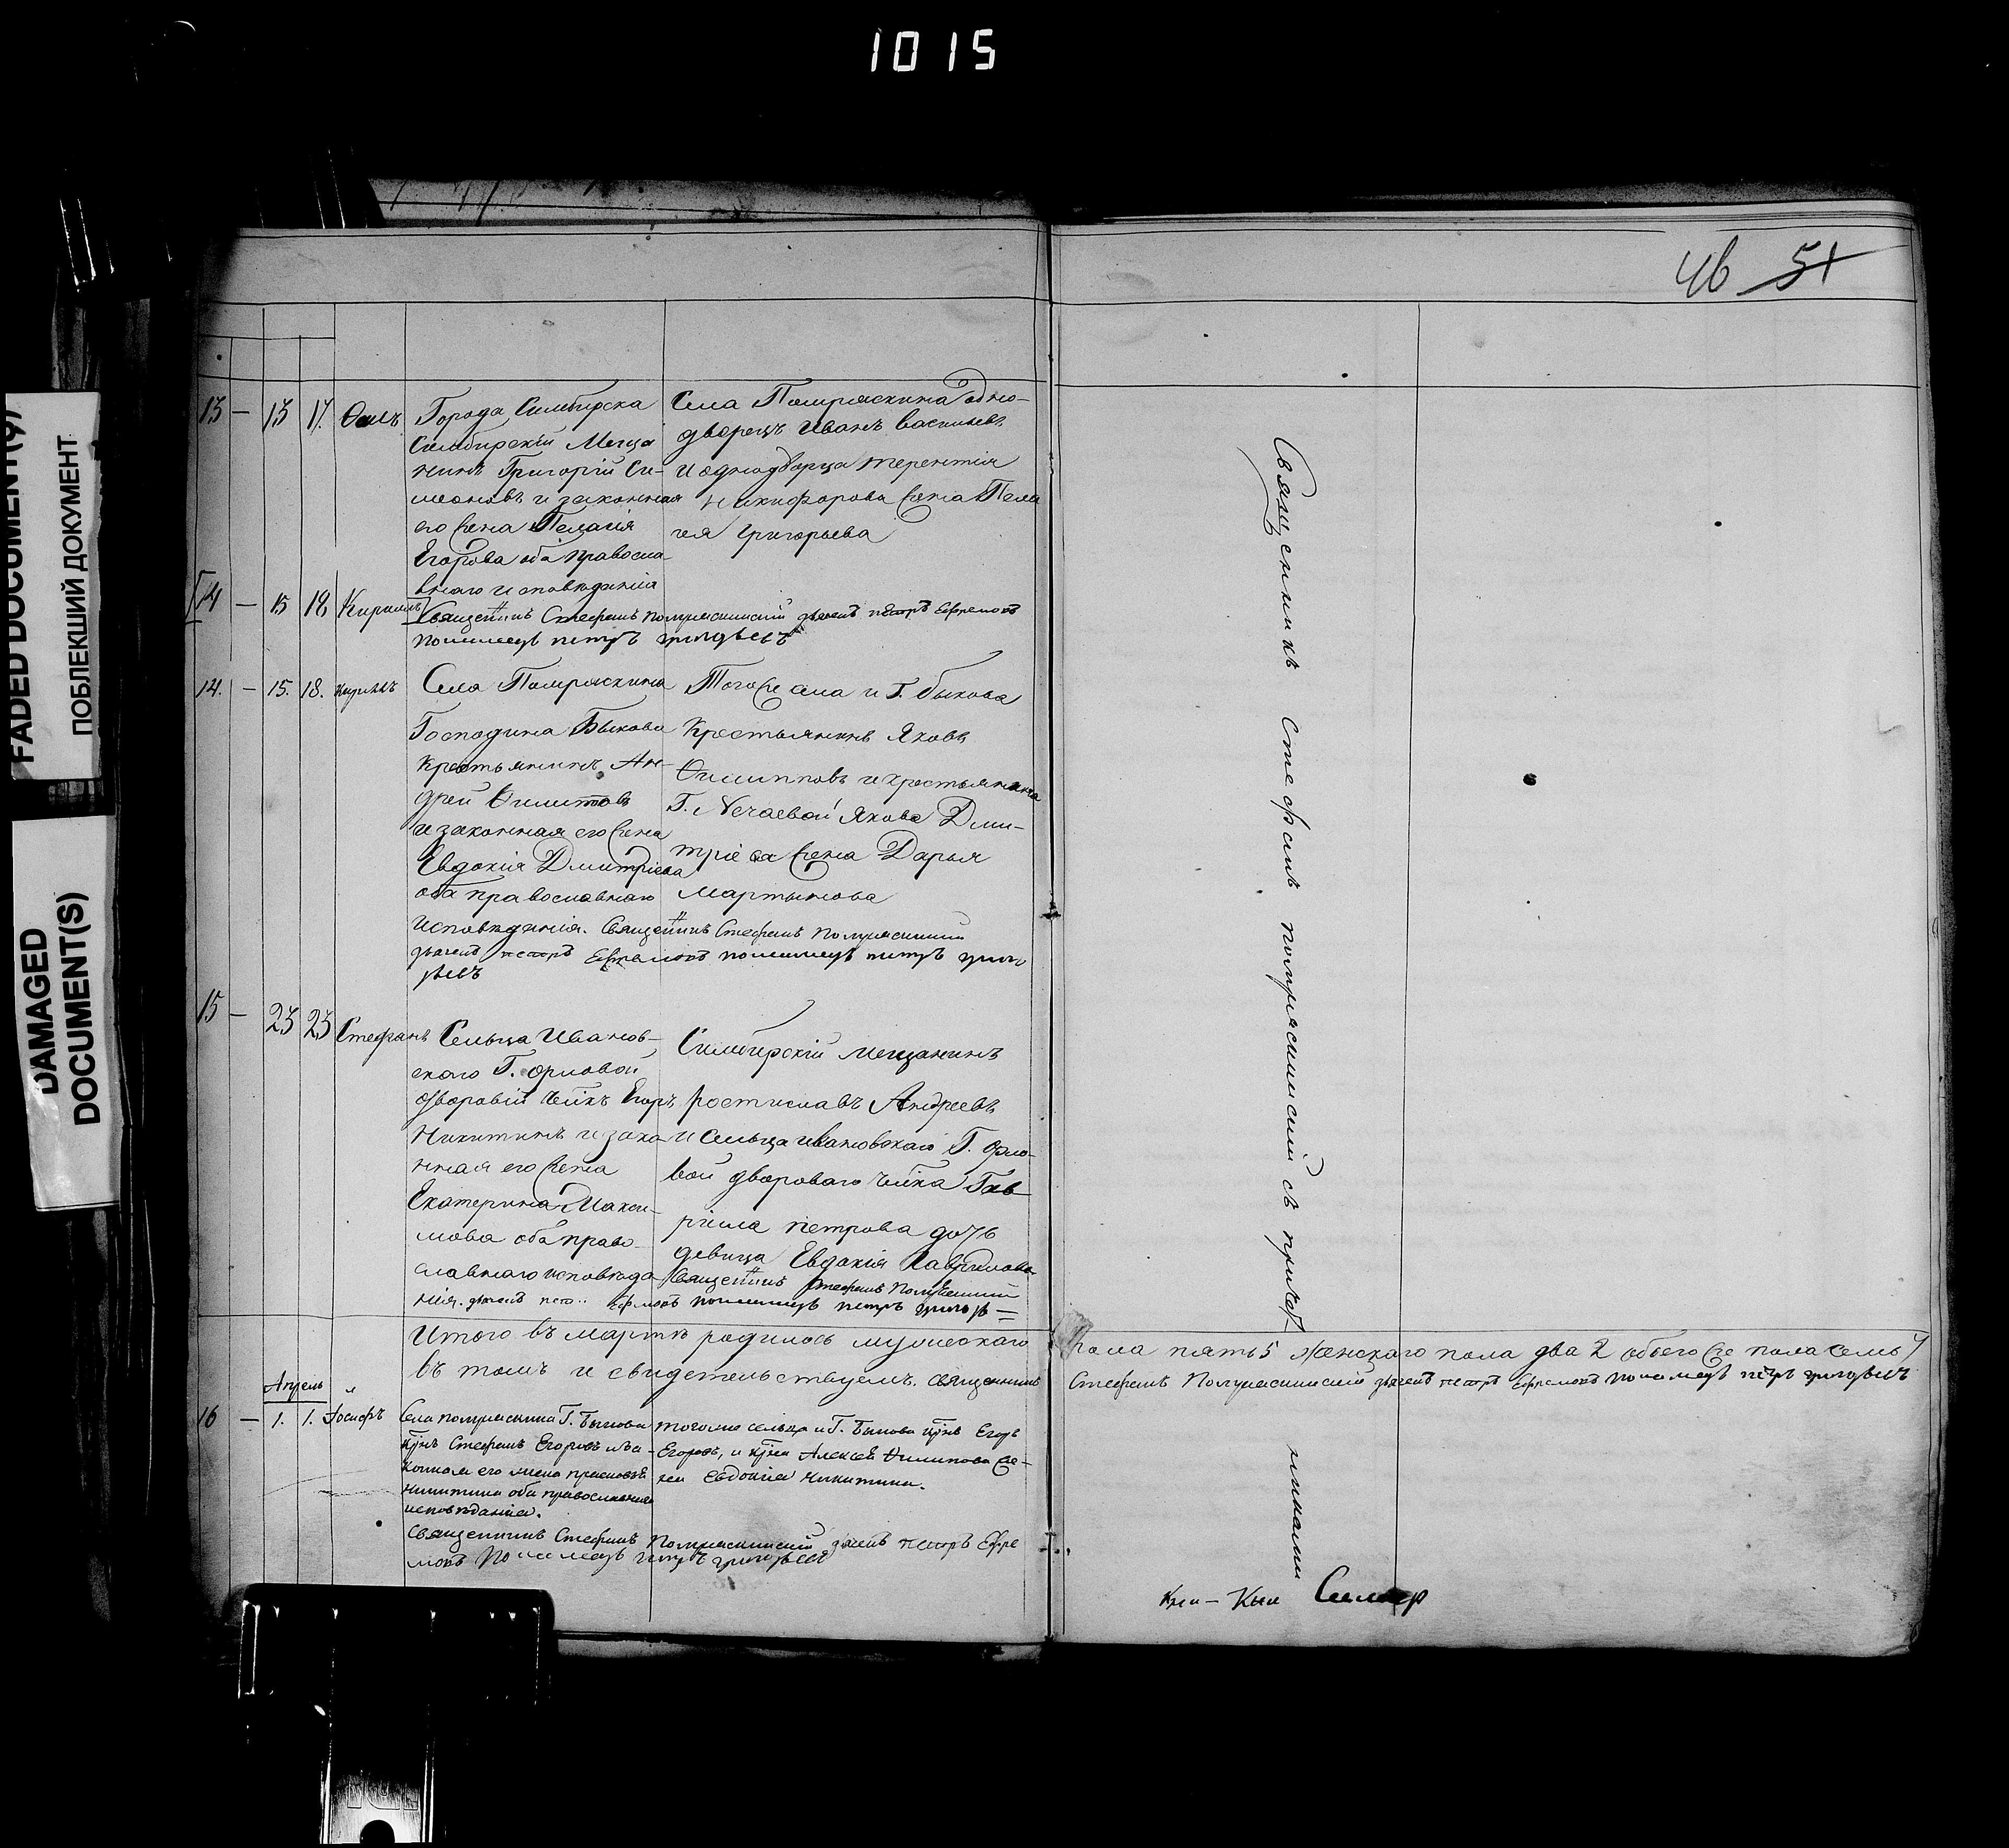 1015
FADED DOCUMENT(S)
ПОБЛЕКШИЙ ДОКУМЕНТ
DAMAGED
DOCUMENT(S)
46 51
13 — 13 17.
Города Симбирска
Симбирскій Меща
нинъ Григорій Си-
меоновъ и законная
его жена Пелагія
Егорова оба правосла
внаго исповѣданія
Села Помряскина Одно-
дворецъ Иванъ Васильевъ
и однодворца терентія
Никифорова жена Пела
гея Григорьева
14 — 15 18 Кириллъ
Священникъ Стефанъ Помряскинскій дьячекъ петръ Ефремовъ
пономарь петръ григорьевъ
14. — 15. 18. Кириллъ
Села Помряскина
Господина Быкова
крестьянинъ Ан-
дрей Филиповъ
и законная его жена
Евдокія Дмитріева
оба православнаго
исповѣданія. Священникъ Стефанъ Помряскинскій
дьячекъ петръ Ефремовъ пономарь петръ григо
рьевъ
Тогоже села и Г. Быкова
Крестьянинъ Яковъ
Филипповъ и крестьянина
Г. Нечаевой Якова Дми-
тріева жена Дарья
Мартынова
15 — 23 23 Стефанъ
Сельца Иванов-
скаго Г. Орловой
дворовый чѣлкъ Егоръ
Никитинъ и зако
нная его жена
Екатерина Макси-
мова оба право-
славнаго исповѣда
нія. дьячекъ петръ Ефремовъ пономарь петръ григорь=
Симбирскій мещанинъ
ростиславъ Андреевъ
и Сельца ивановскаго Г. Орло-
вой двороваго чѣлка Гав-
ріила петрова дочь
девица Евдокія Гаврилова
Священникъ Стефанъ Помряскинскій
Итого въ мартѣ родилось мужескаго пола пять 5 Женскаго пола два 2 обоего же пола семь 7
въ томъ и свидетельствуемъ. священникъ Стефанъ Помряскинскій дьячекъ петръ Ефремовъ пономарь петръ григорьевъ
Апрель
16 — 1. 1. Іосифъ
Села помряскина Г. Быкова
кр̃нъ Стефанъ Егоровъ и за-
конная его жена прасковья
Никитина оба православнаго
исповѣданія.
Священникъ Стефанъ Помряскинскій дьячекъ петръ Ефре
мовъ пономарь петръ григорьевъ
тогоже сельца и Г. Быкова кр̃нъ Егоръ
Егоровъ, и кр̃на Алексѣя Филипова же-
на Евдокія Никитина.
Священникъ Стефанъ помряскинскій съ причет
никами